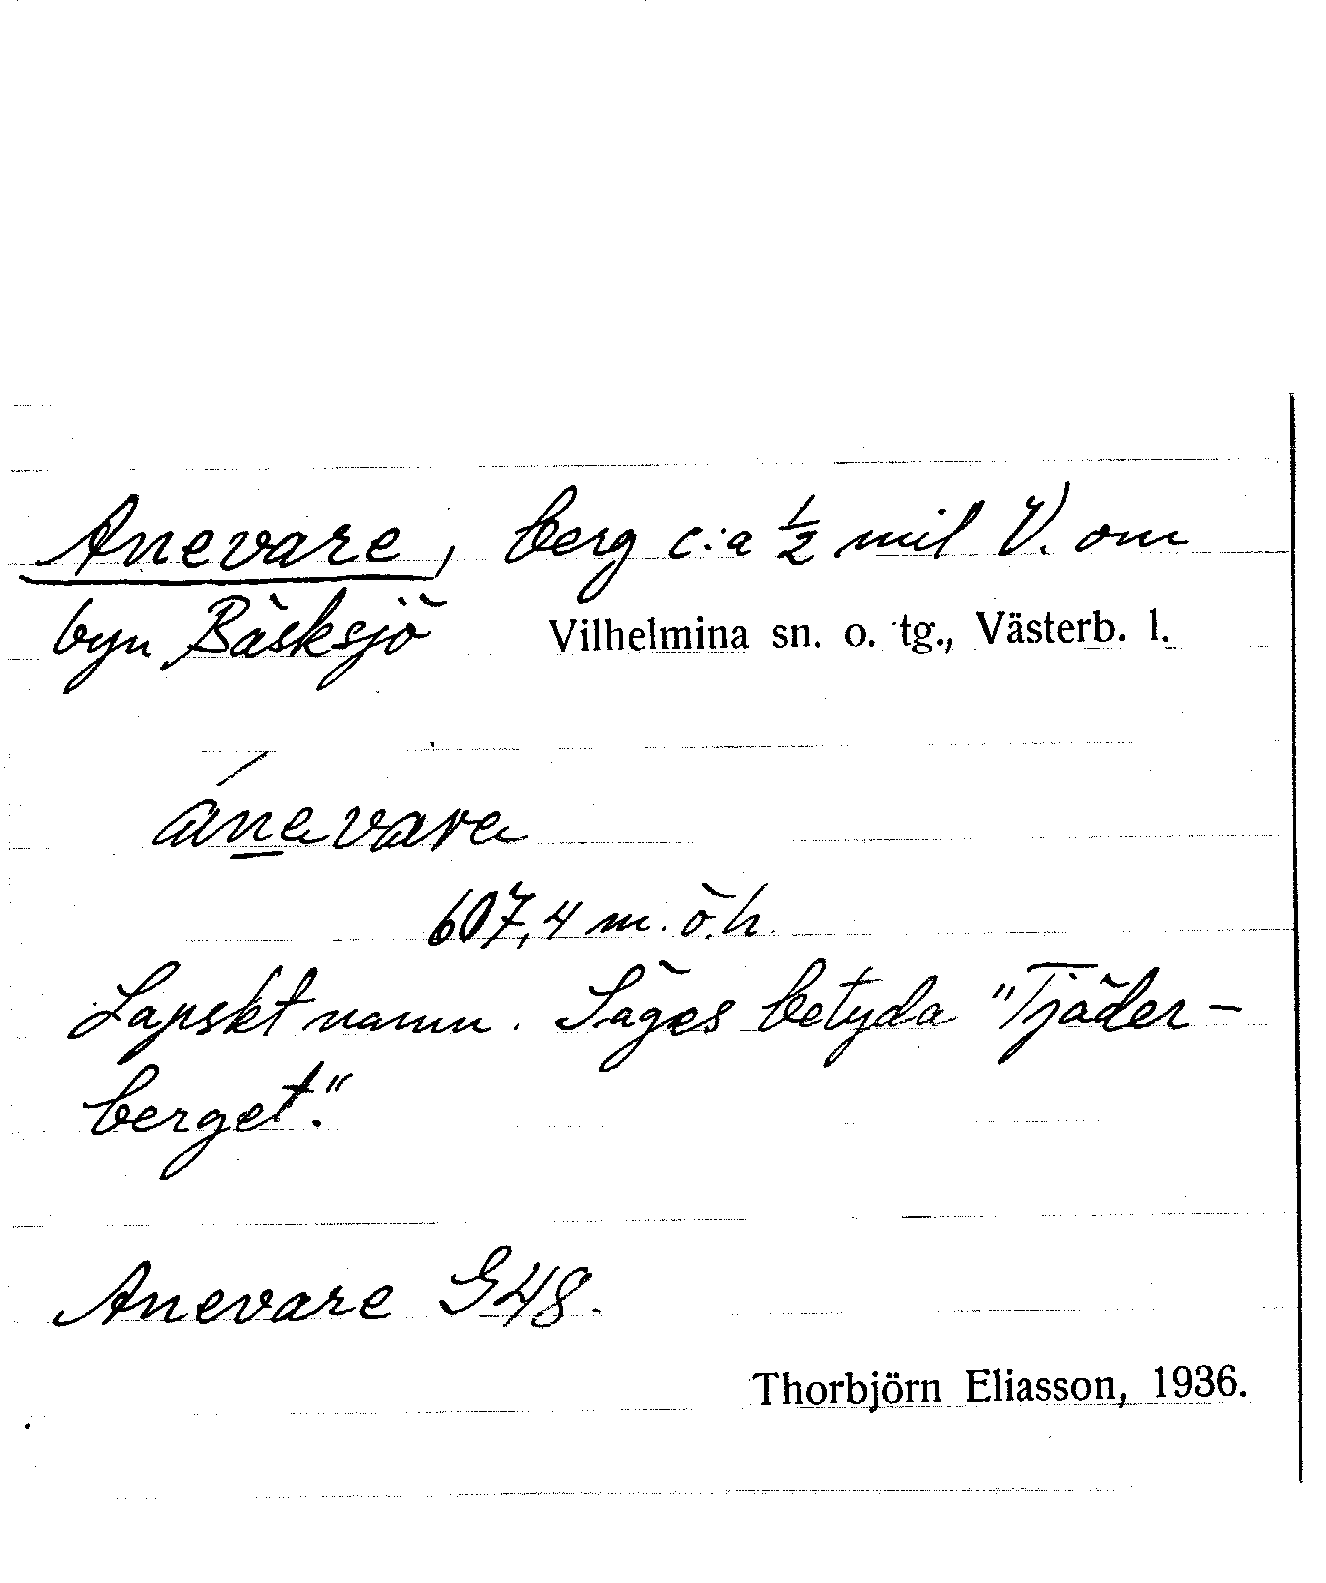 Anevare, berg c:a ½ mil V. om
byn Bäsksjö Vilhelmina sn. o. tg., Västerb. l.
ánevare
607,4 m. ö.h.
Lapskt namn. Säges betyda "Tjäder-
berget."
Anevare G48.
Thorbjörn Eliasson, 1936.